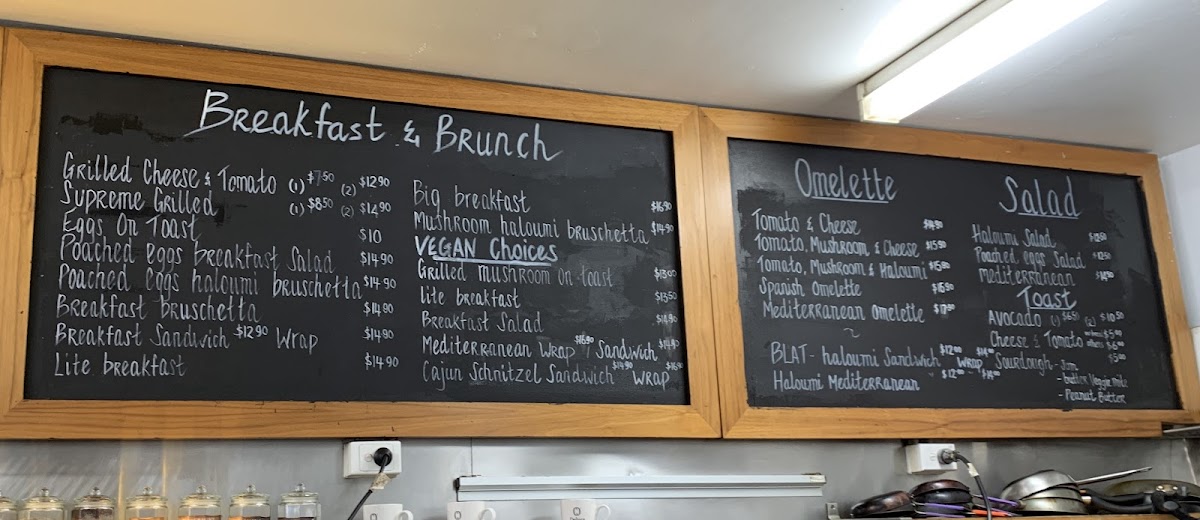 Breakfast & Brunch
Grilled Cheese & Tomato (1) $7.50 (2) $12.90
Supreme Grilled (1) $8.50 (2) $14.90
Eggs On Toast $10
Poached eggs breakfast Salad $14.90
Poached eggs haloumi bruschetta $14.90
Breakfast bruschetta $14.90
Breakfast Sandwich $12.90 Wrap $14.90
Lite breakfast $14.90
Big breakfast $16.90
Mushroom haloumi bruschetta $14.90
VEGAN Choices
Grilled mushroom on toast $13.00
lite breakfast $13.50
Breakfast Salad $14.90
Mediterranean Wrap $16.90 / Sandwich $14.90
Cajun Schnitzel Sandwich $14.90 Wrap
Omelette
Tomato & Cheese $14.90
Tomato, Mushroom & Cheese $15.90
Tomato, Mushroom & Haloumi
Spanish Omelette $16.90
Mediterranean Omelette $17.90
~
BLAT - haloumi Sandwich $12.00 Wrap $14.00
Haloumi Mediterranean " $12.00 "
Salad
Haloumi Salad
Poached eggs Salad
mediterranean $14.90
Toast
Avocado (1) $6.50 (2) $10.50
Cheese & Tomato $5.00 $6.00
Sourdough - Jam $5.00
- butter Veggie mite
- Peanut Butter